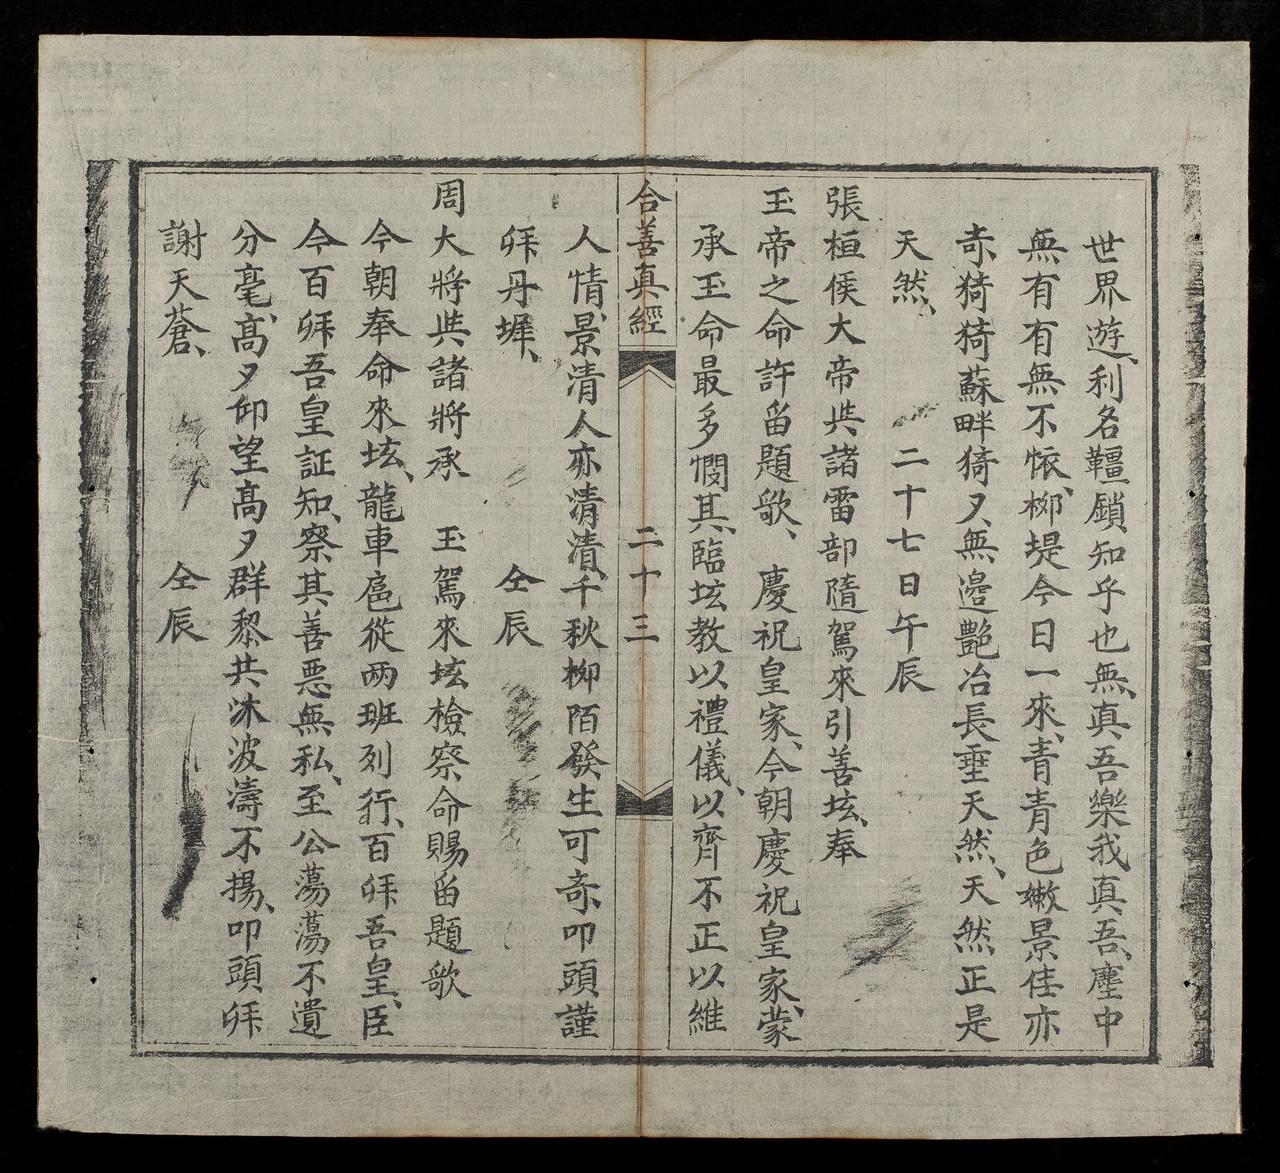 世界遊、利名韁鎖、知乎也無、真吾樂我真吾、塵中
無有有無不恠、柳堤今日一來、青青色嫩景佳亦
奇、猗猗蘇畔猗夕、無邉艶冶長垂天然、天然正是
天然、 二十七日午辰
張桓侯大帝與諸雷部隨駕來引善坛、奉
玉帝之命許畄題歌、 慶祝皇家、今朝慶祝皇家、蒙
承玉命最多憫其、臨坛教以禮儀、以齊不正以維
合善真經 二十三
人情、景清人亦清清、千秋柳陌發生可奇、叩頭謹
拜丹墀、 仝辰
周大將與諸將承 玉駕來坛檢察命賜畄題歌
今朝奉命來坛、龍車扈從两班列行、百拜吾皇、臣
今百拜吾皇証知、察其善悪無私、至公蕩蕩不遺
分毫、高夕仰望高夕群黎共沐波濤不揚、叩頭拜
謝天蒼、 仝辰